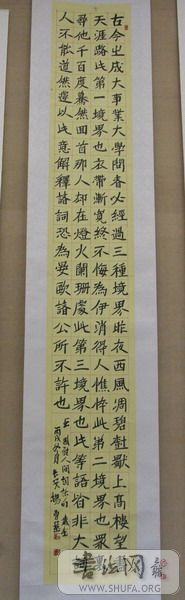 古今之成大事業大學問者必經過三種境界昨夜西風凋碧樹獨上高樓望盡
天涯路此第一境界也衣帶漸寬終不悔為伊消得人憔悴此第二境界也衆裏
尋他千百度驀然回首那人卻在燈火闌珊處此第三境界也此等語皆非大詞
人不能道然遽以此意解釋諸詞恐為晏歐諸公所不許也
王國維人間詞話
丙戌冬月
書法网
WWW.SHUFA.ORG